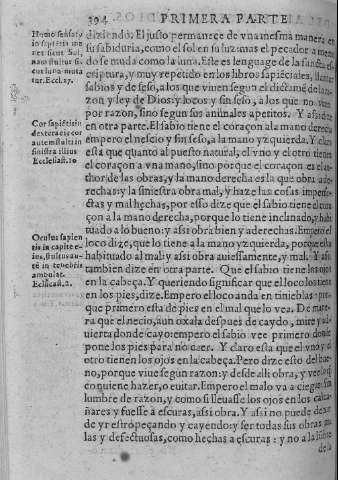 394 PRIMERA PARTE
Homo sensatus
in sapiētia ma-
net sicut Sol,
nam stultus si-
cut luna muta-
tur. Eccl. 27.
Cor sapiētis in
dextera eius cor
autem stulti in
sinistra illius
Ecclesiast. 10
Oculus sapien
tis in capite e-
ius, stultus au-
tē in tenebris
ambulat.
Eclesiast. 2.
diziendo: El justo permanece de vna mesma manera en
su sabiduria, como el sol en su luz: mas el pecador a menu
do se muda como la luna. Este es lenguage de la sancta es-
criptura, y muy repetido en los libros sapiēciales, llamar
sabios y de seso, a los que viuen segun el dictamē de la ra-
zon y ley de Dios: y locos y sin seso, a los que no viuen
por razon, sino segun sus animales apetitos. Y assi dize
en otra parte. El sabio tiene el coraçon a la mano derecha
empero el nescio y sin seso, a la mano yzquierda. Y claro
esta que quanto al puesto natural, el vno y el otro tienen
el coraçon a vna mano, sino porque el coraçon es el au-
thor de las obras, y la mano derecha es la que obra ade-
rechas: y la siniestra obra mal, y haze las cosas imperfe-
ctas y mal hechas, por esso dize que el sabio tiene el cora
çon a la mano derecha, porque lo tiene inclinado, y habi
tuado a lo bueno: y assi obra bien y aderechas. Empero el
loco dize, que lo tiene a la mano yzquierda, porque esta
habituado al mal: y assi obra auiessamente, y mal. Y assi
tambien dize en otra parte. Que el sabio tiene los ojos
en la cabeça. Y queriendo significar que el loco los tiene
en los pies, dize. Empero el loco anda en tinieblas: por-
que primero esta de pies en el mal que lo vea. De mane-
ra que el necio, aun oxala despues de caydo, mire y ad-
uierta donde cayo: empero el sabio vee primero donde
pone los pies para no caer. Y claro esta que el vno y el
otro tienen los ojos en la cabeça. Pero dize esto del bue-
no, porque viue segun razon: y desde alli obra, y vee lo q̄
conuiene hazer, o euitar. Empero el malo va a ciegas sin
lumbre de razon, y como si lleuasse los ojos en los calca-
ñares y fuesse a escuras, assi obra. Y assi no puede dexar
de yr estropeçando y cayendo: y ser todas sus obras ma-
las y defectuosas, como hechas a escuras: y no a la lūbre
de la